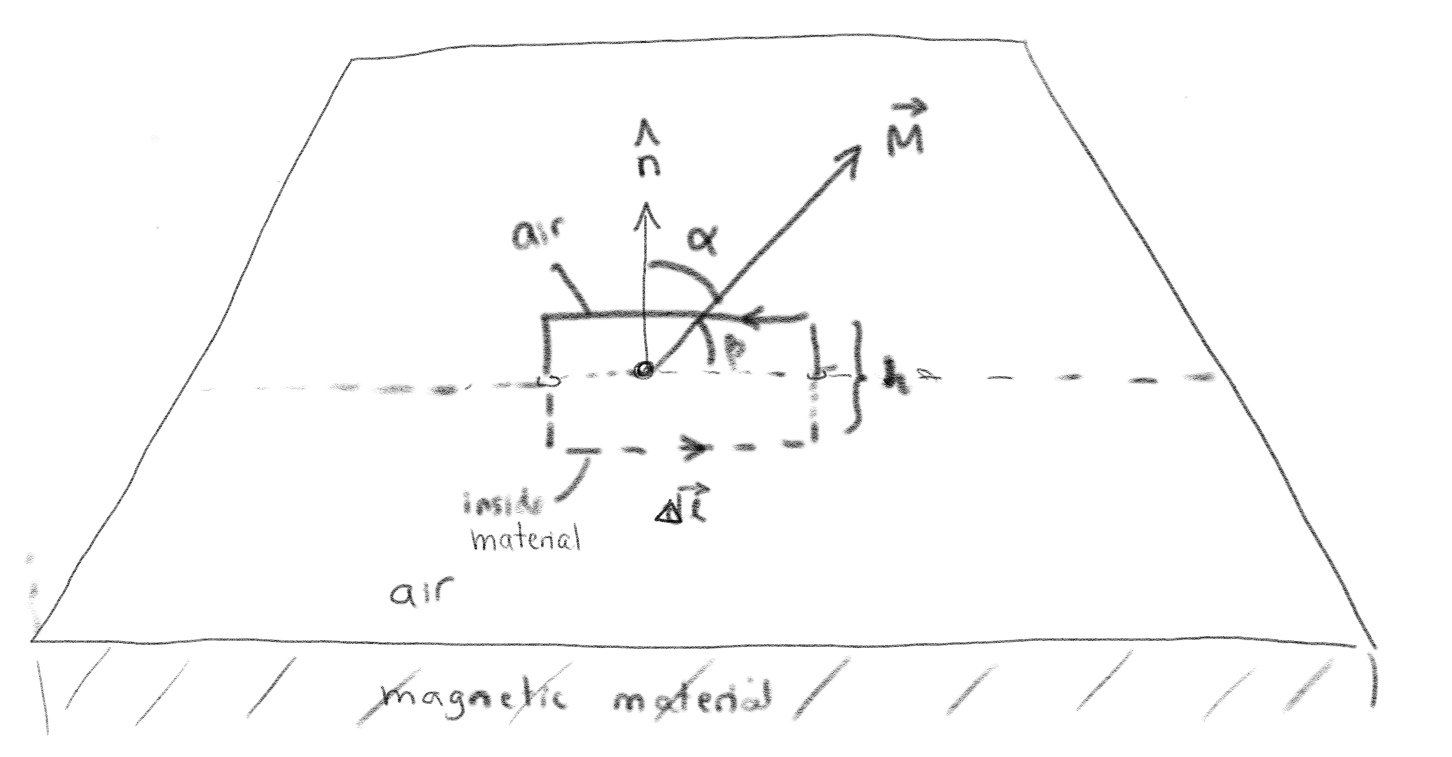 M⃗
n̂
air
α
β
h
Δl⃗
inside
material
air
magnetic material